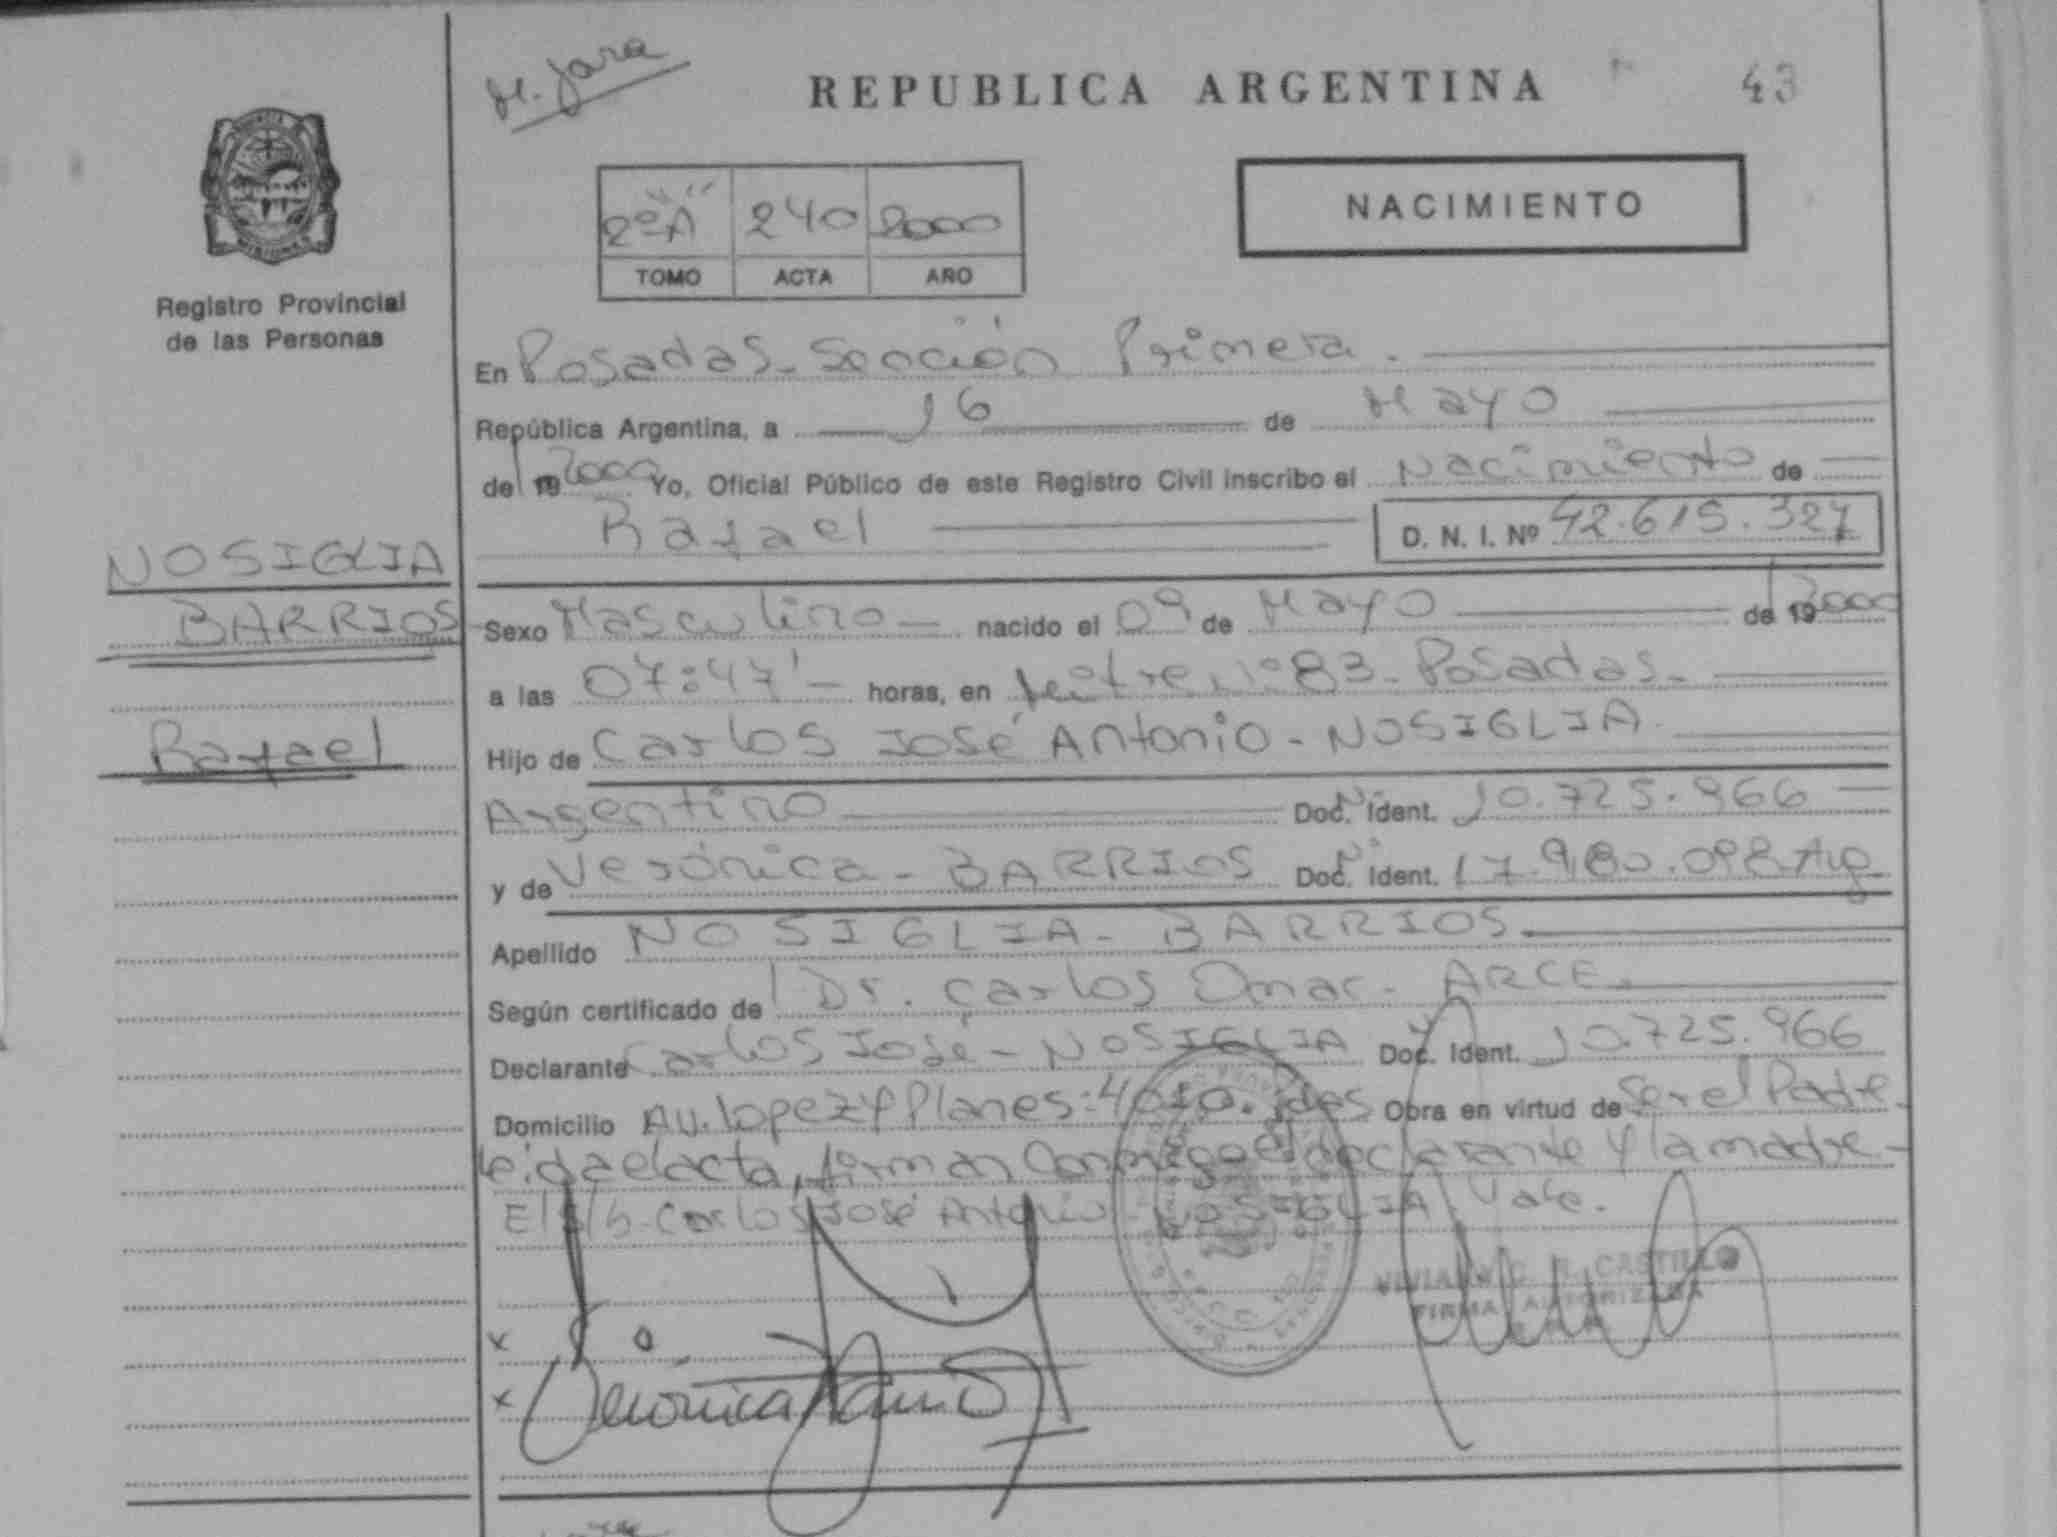 M. Jara
REPUBLICA ARGENTINA
43
2º "A" 240 2000
TOMO ACTA AÑO
NACIMIENTO
Registro Provincial
de las Personas
En Posadas - Sección Primera.
República Argentina, a 16 de Mayo
del 19 2000 Yo, Oficial Público de este Registro Civil inscribo el Nacimiento de
Rafael D. N. I. Nº 42.615.327
NOSIGLIA
BARRIOS
Rafael
Sexo Masculino - nacido el 09 de Mayo del 19 2000
a las 07:47' - horas, en Mitre nº 83 - Posadas -
Hijo de Carlos José Antonio - NOSIGLIA
Argentino Doc. Ident. 10.725.966
y de Verónica - BARRIOS Doc. Ident. 17.980.098 Arg
Apellido NOSIGLIA - BARRIOS.
Según certificado de Dr. Carlos Omar - ARCE.
Declarante Carlos José - NOSIGLIA Doc. Ident. 10.725.966
Domicilio Av. Lopez y Planes: 4010. Pdas Obra en virtud de Ser el Padre -
leida el acta, firman conmigo el declarante y la madre -
E/s/b - Carlos José Antonio - NOSIGLIA Vale.
CASTILLO
FIRMA AUTORIZADA
x
x Verónica Barrios